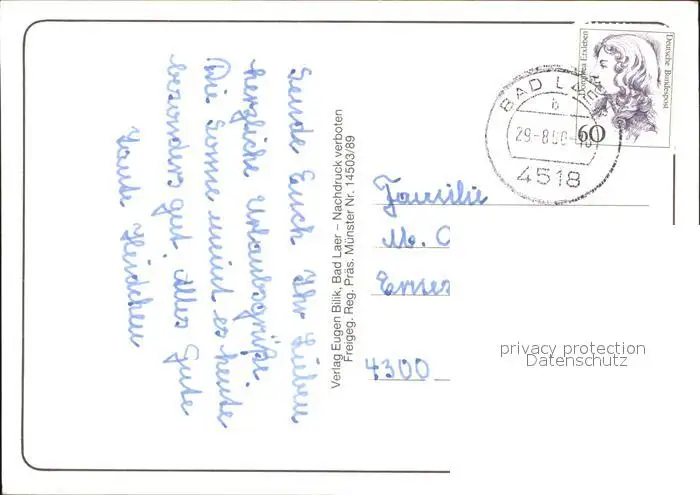 Sende Euch Ihr Lieben
herzliche Urlaubsgrüße
Die Sonne meint es heute
besonders gut. Alles Gute
Tante Heidchen
Verlag Eugen Bilik, Bad Laer – Nachdruck verboten
Freigeg. Reg. Präs. Münster Nr. 14503/89
Dorothea Erxleben
Deutsche Bundespost
60
BAD LAER
b
29.-8.90
4518
Familie
M. C
4300
privacy protection
Datenschutz